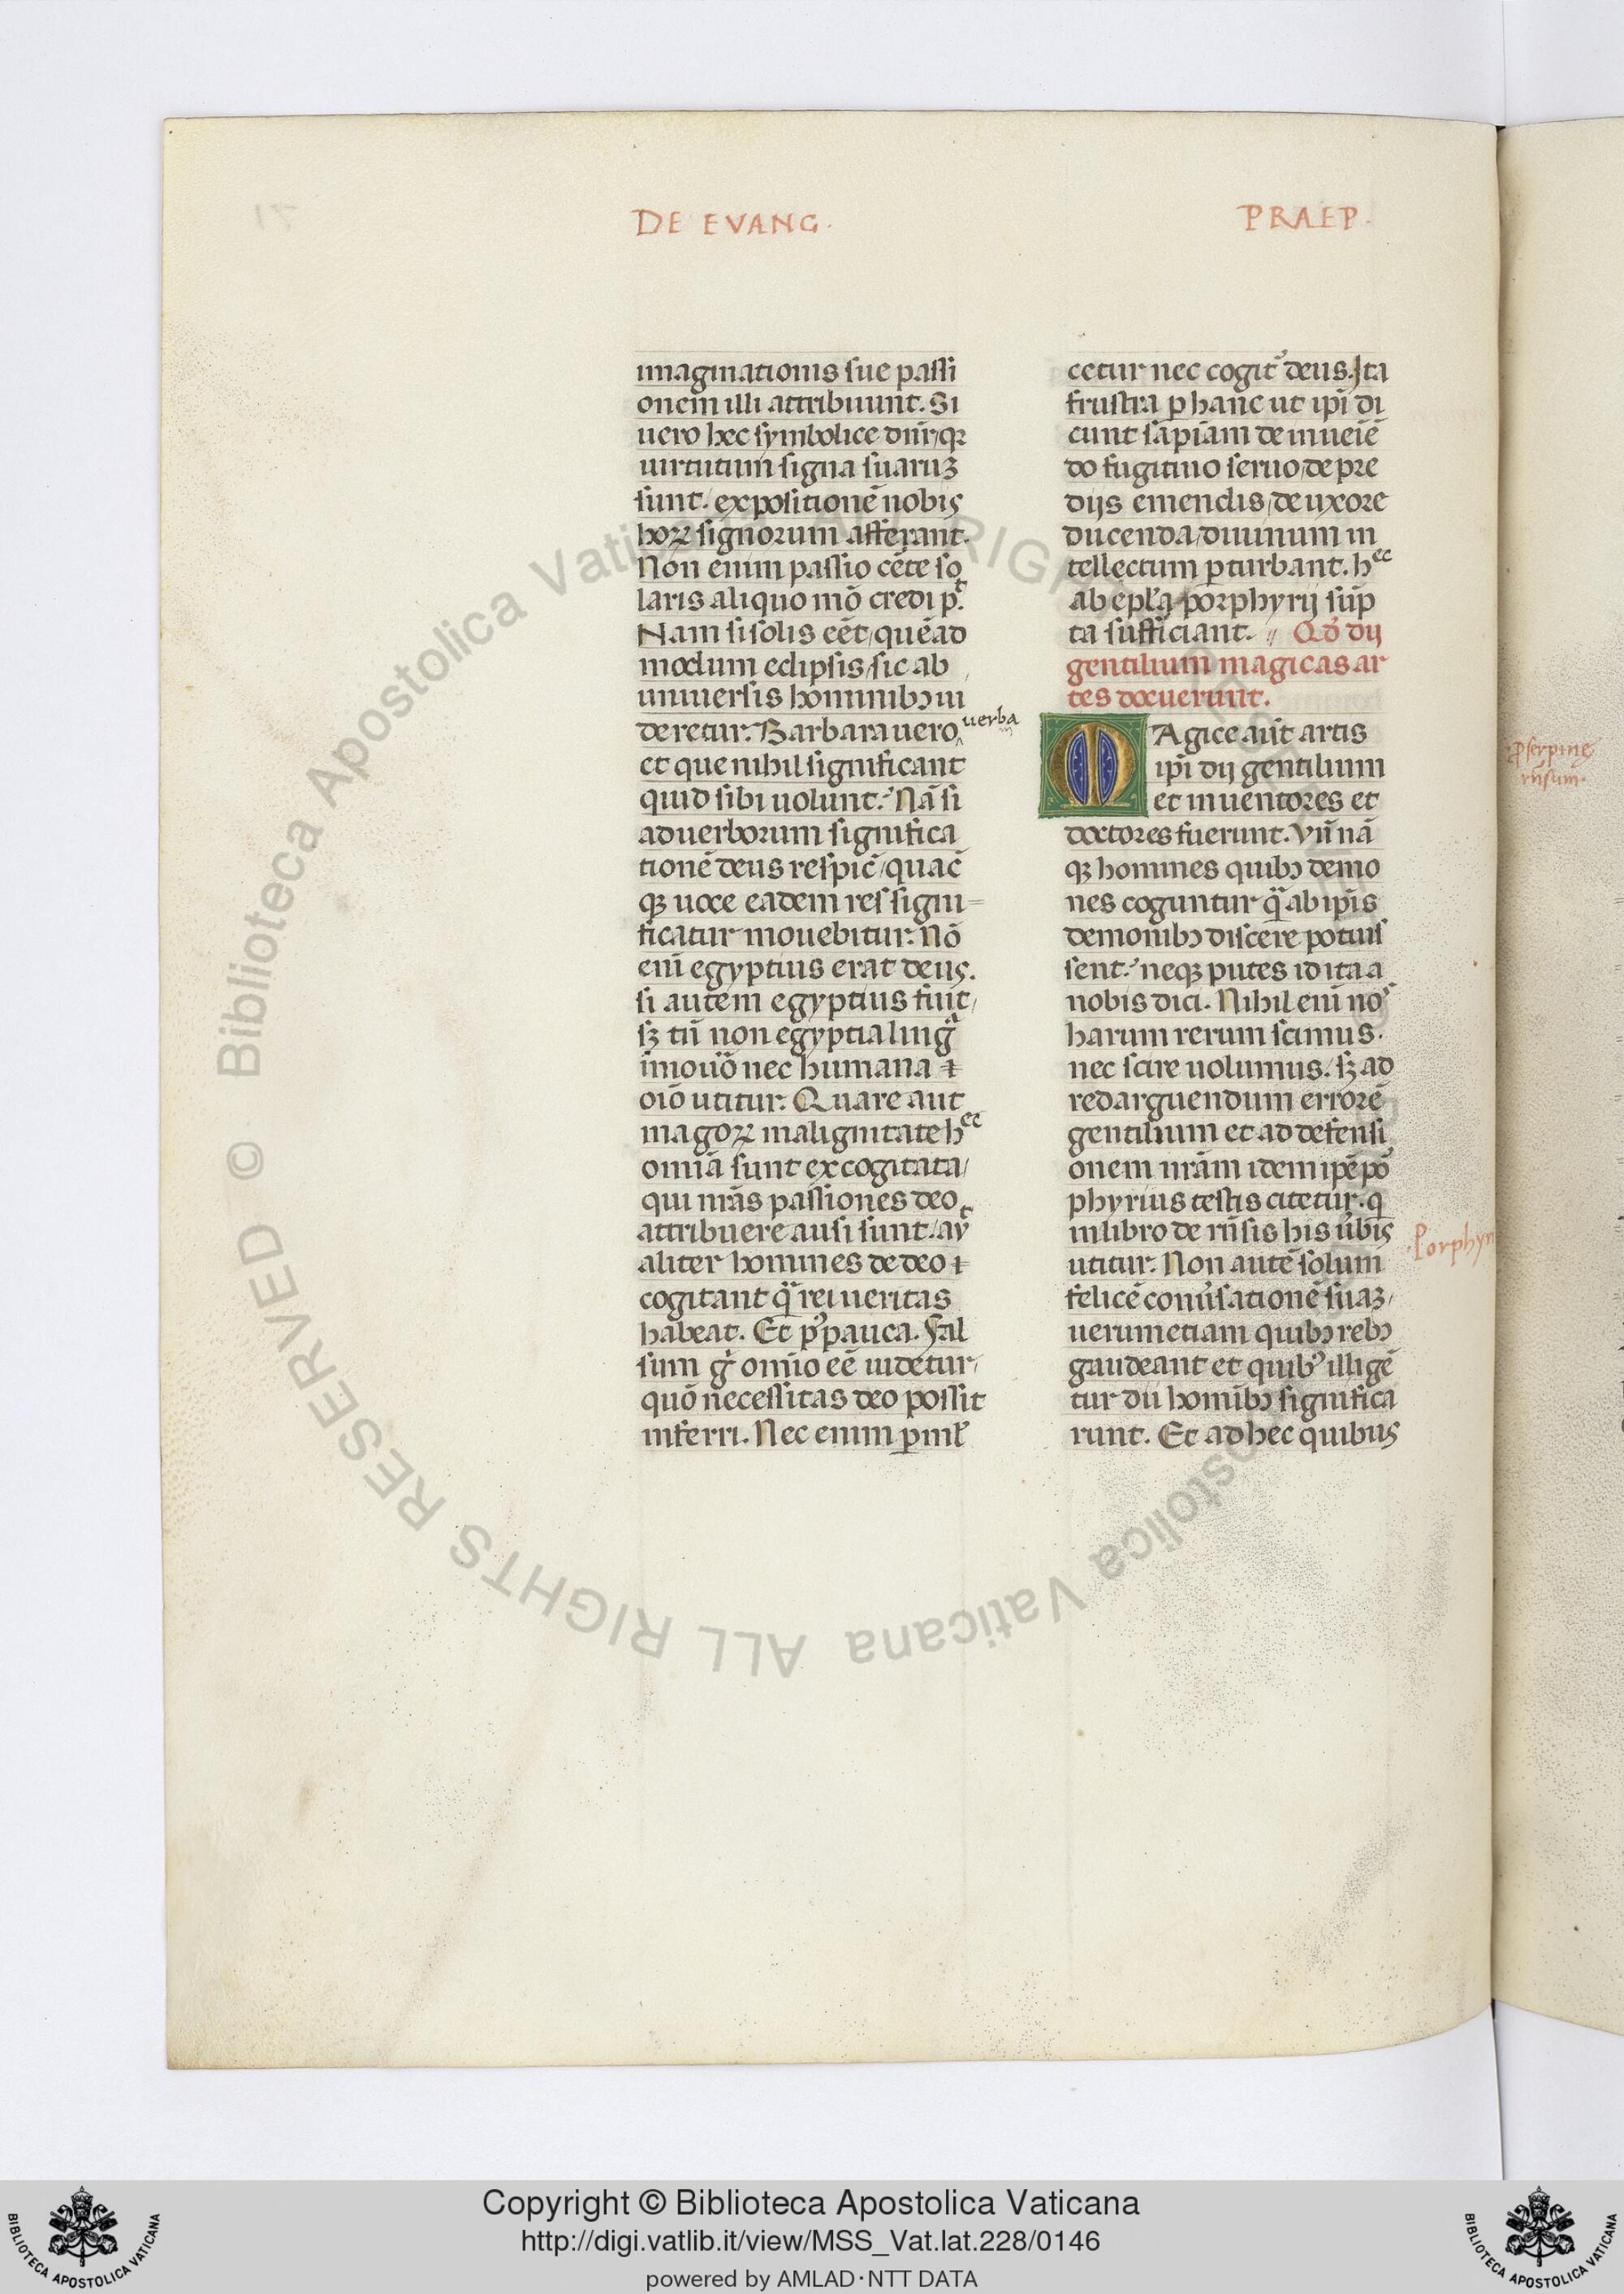 DE EVANG.
PRAEP.
imaginationis sue passi
onem illi attribuunt. Si
uero hec symbolice dnr̄, qꝫ
uirtutum signa suaruꝫ
sunt, expositionē nobis
hoꝝ signorum afferant.
Non enim passio cēte so
laris aliquo mō credi pͭ.
Nam si solis eēt, quēad
modum eclipsis, sic ab
uniuersis hominibꝰ ui
deretur. Barbara uero uerba
et que nihil significant
quid sibi uolunt. Nā si
ad uerborum significa
tionē deus respic̄, quac̄
qꝫ uoce eadem res signi
ficatur mouebitur. Nō
enī egyptius erat deus.
si autem egyptius fuit,
sꝫ tn̄ non egyptia lingͣ
imouō nec humana ⁊
oīo utitur. Quare aut
magoꝝ malignitate hec
omīa sunt excogitata,
qui nr̄as passiones deo
attribuere ausi sunt, auͭ
aliter homines de deo ⁊
cogitant qͣ rei ueritas
habeat. Et pꝰ pauca. Fal
sum gͥ omīo eē uidetur,
quō necessitas deo possit
inferri. Nec enim ꝑmł
cetur nec cogitͬ deus. Ita
frustra ꝑ hanc ut ipī di
cunt sapīam de inueiē
do fugitiuo seruo, de pre
dijs emendis, de uxore
ducenda, diuinum in
tellectum ꝑturbant. hec
ab epła porphyrij sūp
ta sufficiant. Qd̄ dij
gentilium magicas ar
tes docuerunt.
MAgice aūt artis
ipī dij gentilium
et inuentores et
doctores fuerunt. Vn̄ nā
qꝫ homines quibꝰ demo
nes coguntur qͣ ab ipīs
demonibꝰ discere potuis
sent. neqꝫ putes id ita a
nobis dici. Nihil enī nos
harum rerum scimus.
nec scire uolumus. sꝫ ad
redarguendum errorē
gentilium et ad defensi
onem nr̄am idem ipē poͬ
phyrius testis citetur. q̄
in libro de rn̄sis his ūbis
utitur. Non autē solum
felicē conūsationē suaꝫ,
uerumetiam quibꝰ rebꝰ
gaudeant et quibꝰ illigē
tur dij homībꝰ significa
runt. Et ad hec quibus
ꝓserpine
rn̄sum.
Porphyri
Biblioteca Apostolica Vaticana ALL RIGHTS RESERVED ©
Copyright © Biblioteca Apostolica Vaticana
http://digi.vatlib.it/view/MSS_Vat.lat.228/0146
powered by AMLAD·NTT DATA
BIBLIOTECA APOSTOLICA VATICANA
BIBLIOTECA APOSTOLICA VATICANA